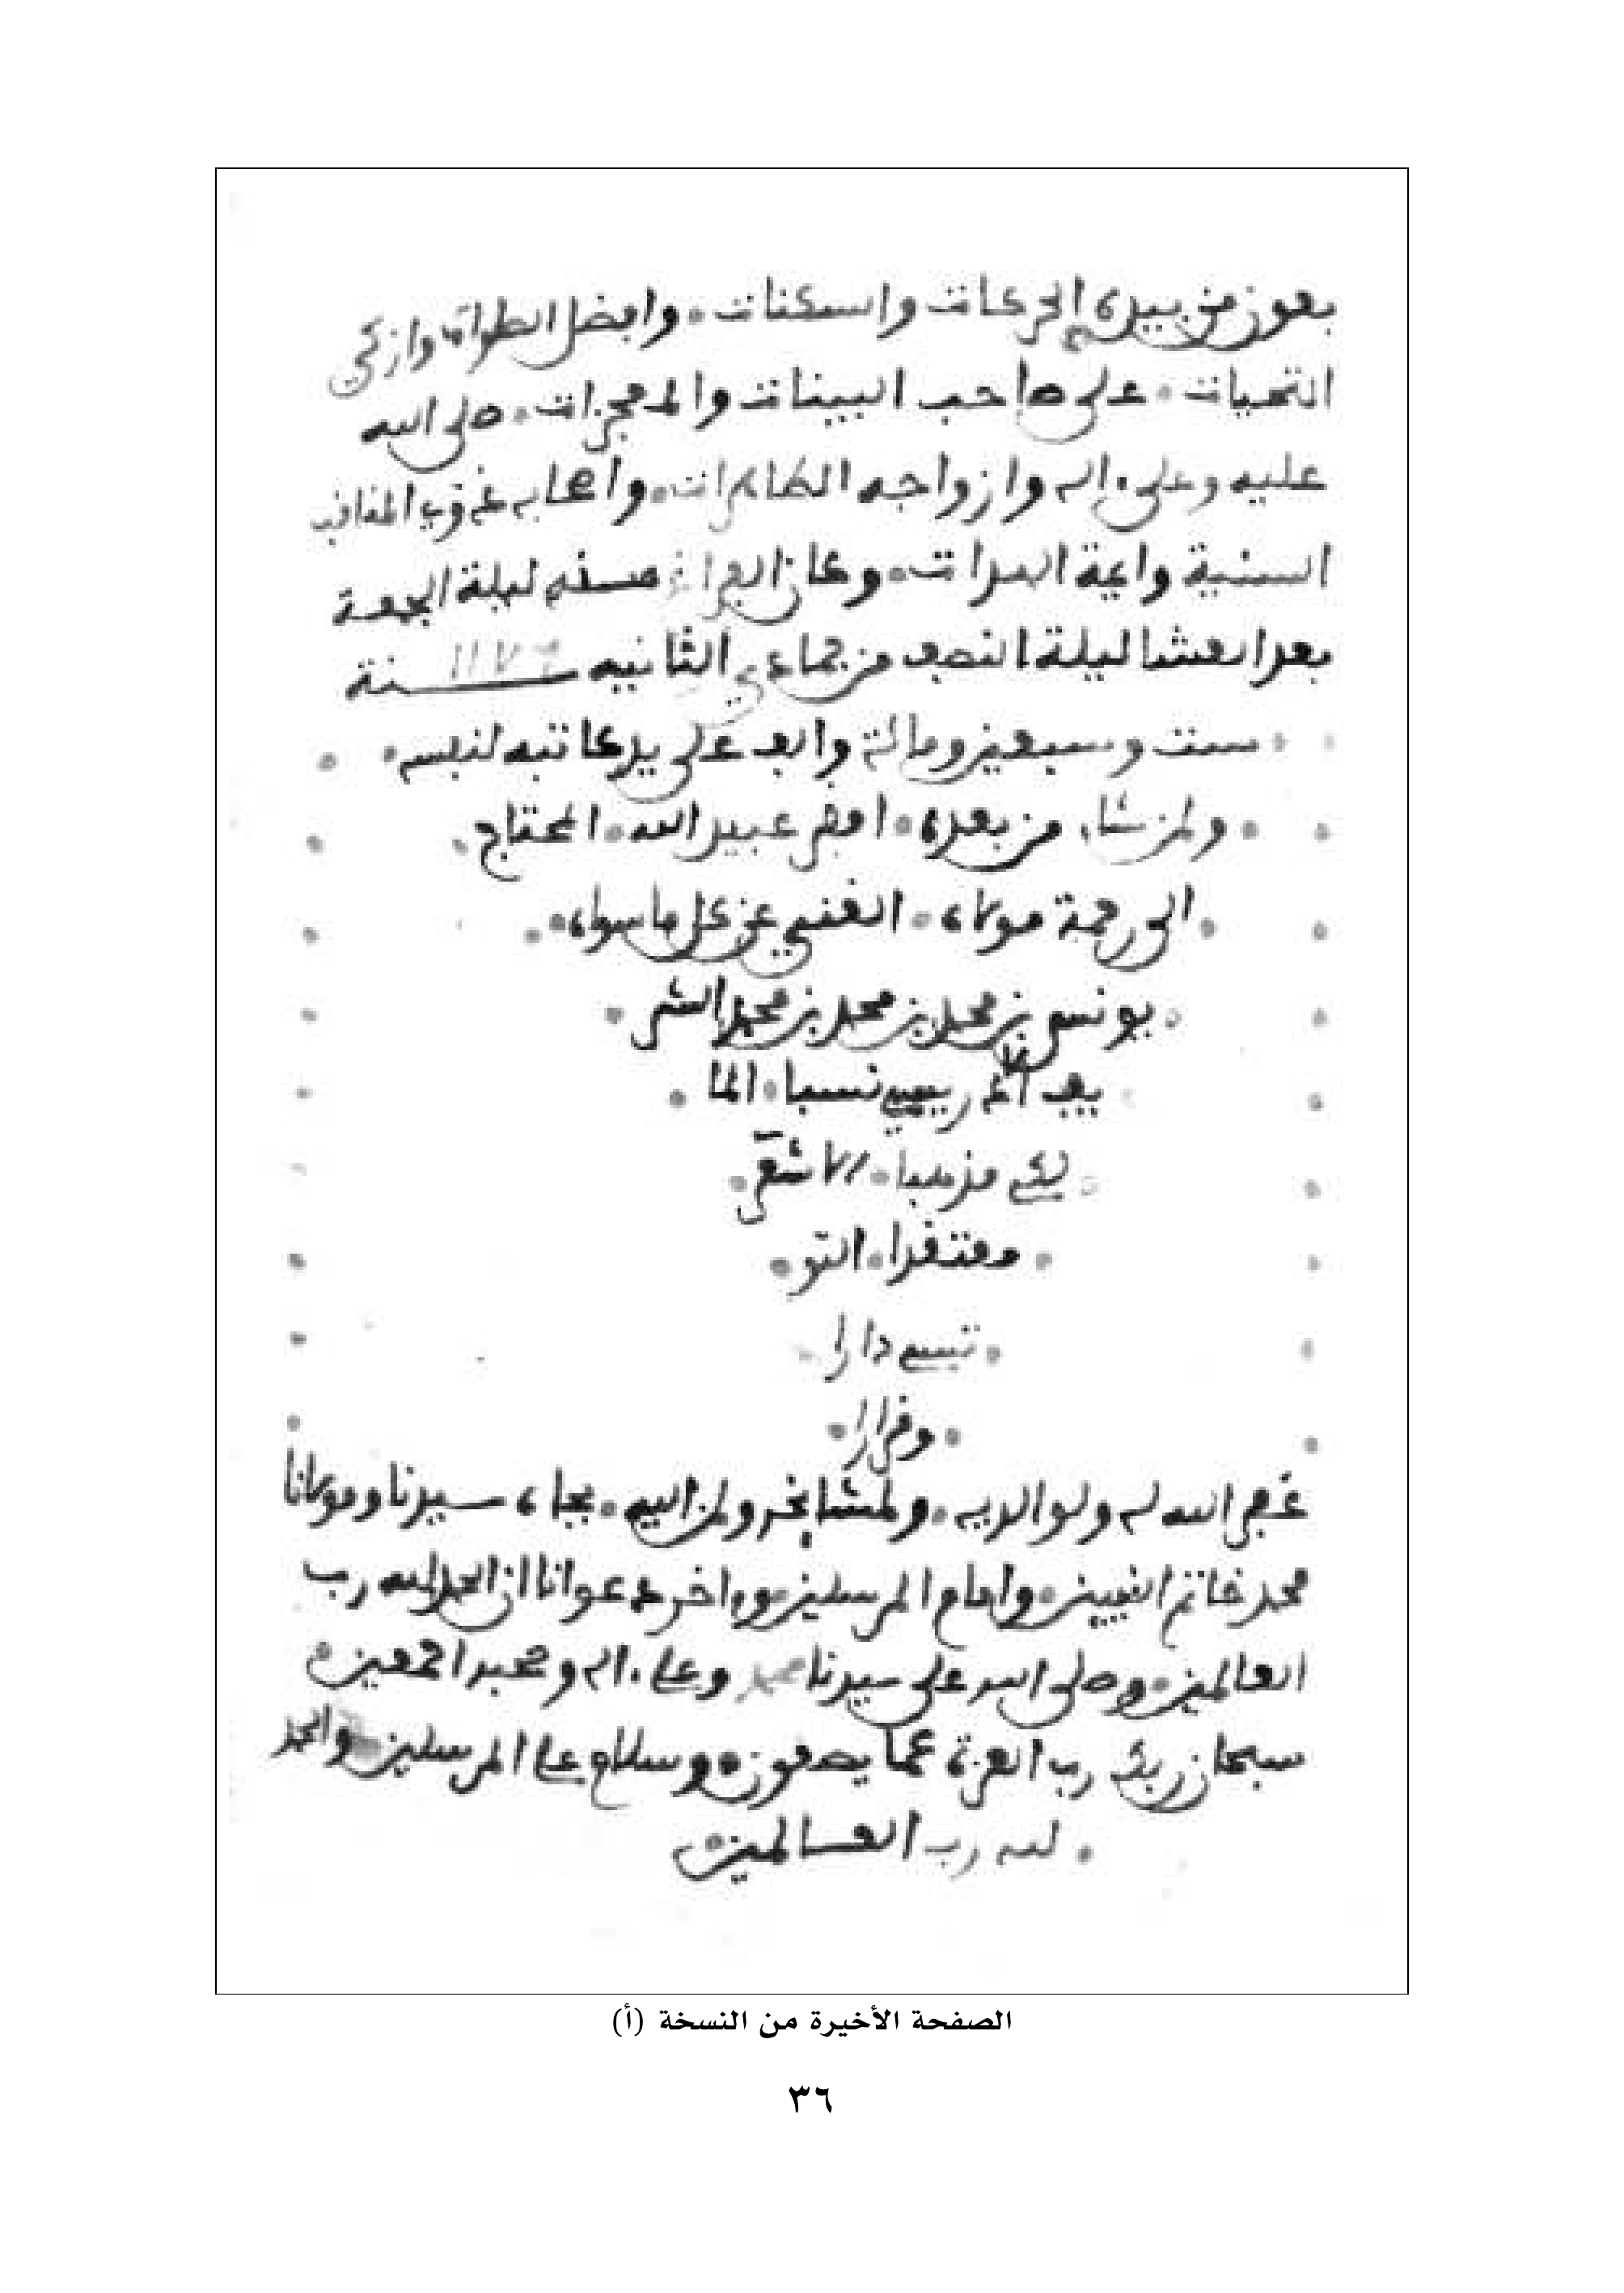 بعون من بيده الحركات والسكنات وافضل الصلوات وازكى
التحيات على صاحب البينات والمعجزات صلى الله
عليه وعلى ءاله وازواجه الطاهرات واصحابه ذوي المناقب
السنية وايمة الهدات وكان الفراغ منه ليلة الجمعة
بعد العشا ليلة النصف من جمادى الثانيه ١١٧٦ سنة
ست وسبعين ومائة والف على يد كاتبه لنفسه
ولمن شاء من بعده افقر عبيد الله المحتاج
الى رحمة مولاه الغني عن كل ما سواه
يونس بن محمد بن محمد بن محمد الشر
يف نسبا الما
لكي مذهبا الاشعري
معتقدا التو
نسي دارا
وقرارا
غفر الله له ولوالديه ولمشايخه ولمن اليه بجاه سيدنا ومولانا
محمد خاتم النبيين وامام المرسلين وءاخر دعوانا ان الحمد لله رب
العالمين وصلى الله على سيدنا محمد وعلى ءاله وصحبه اجمعين
سبحان ربك رب العزة عما يصفون وسلام على المرسلين والحمد
لله رب العالمين
الصفحة الأخيرة من النسخة (أ)
٣٦